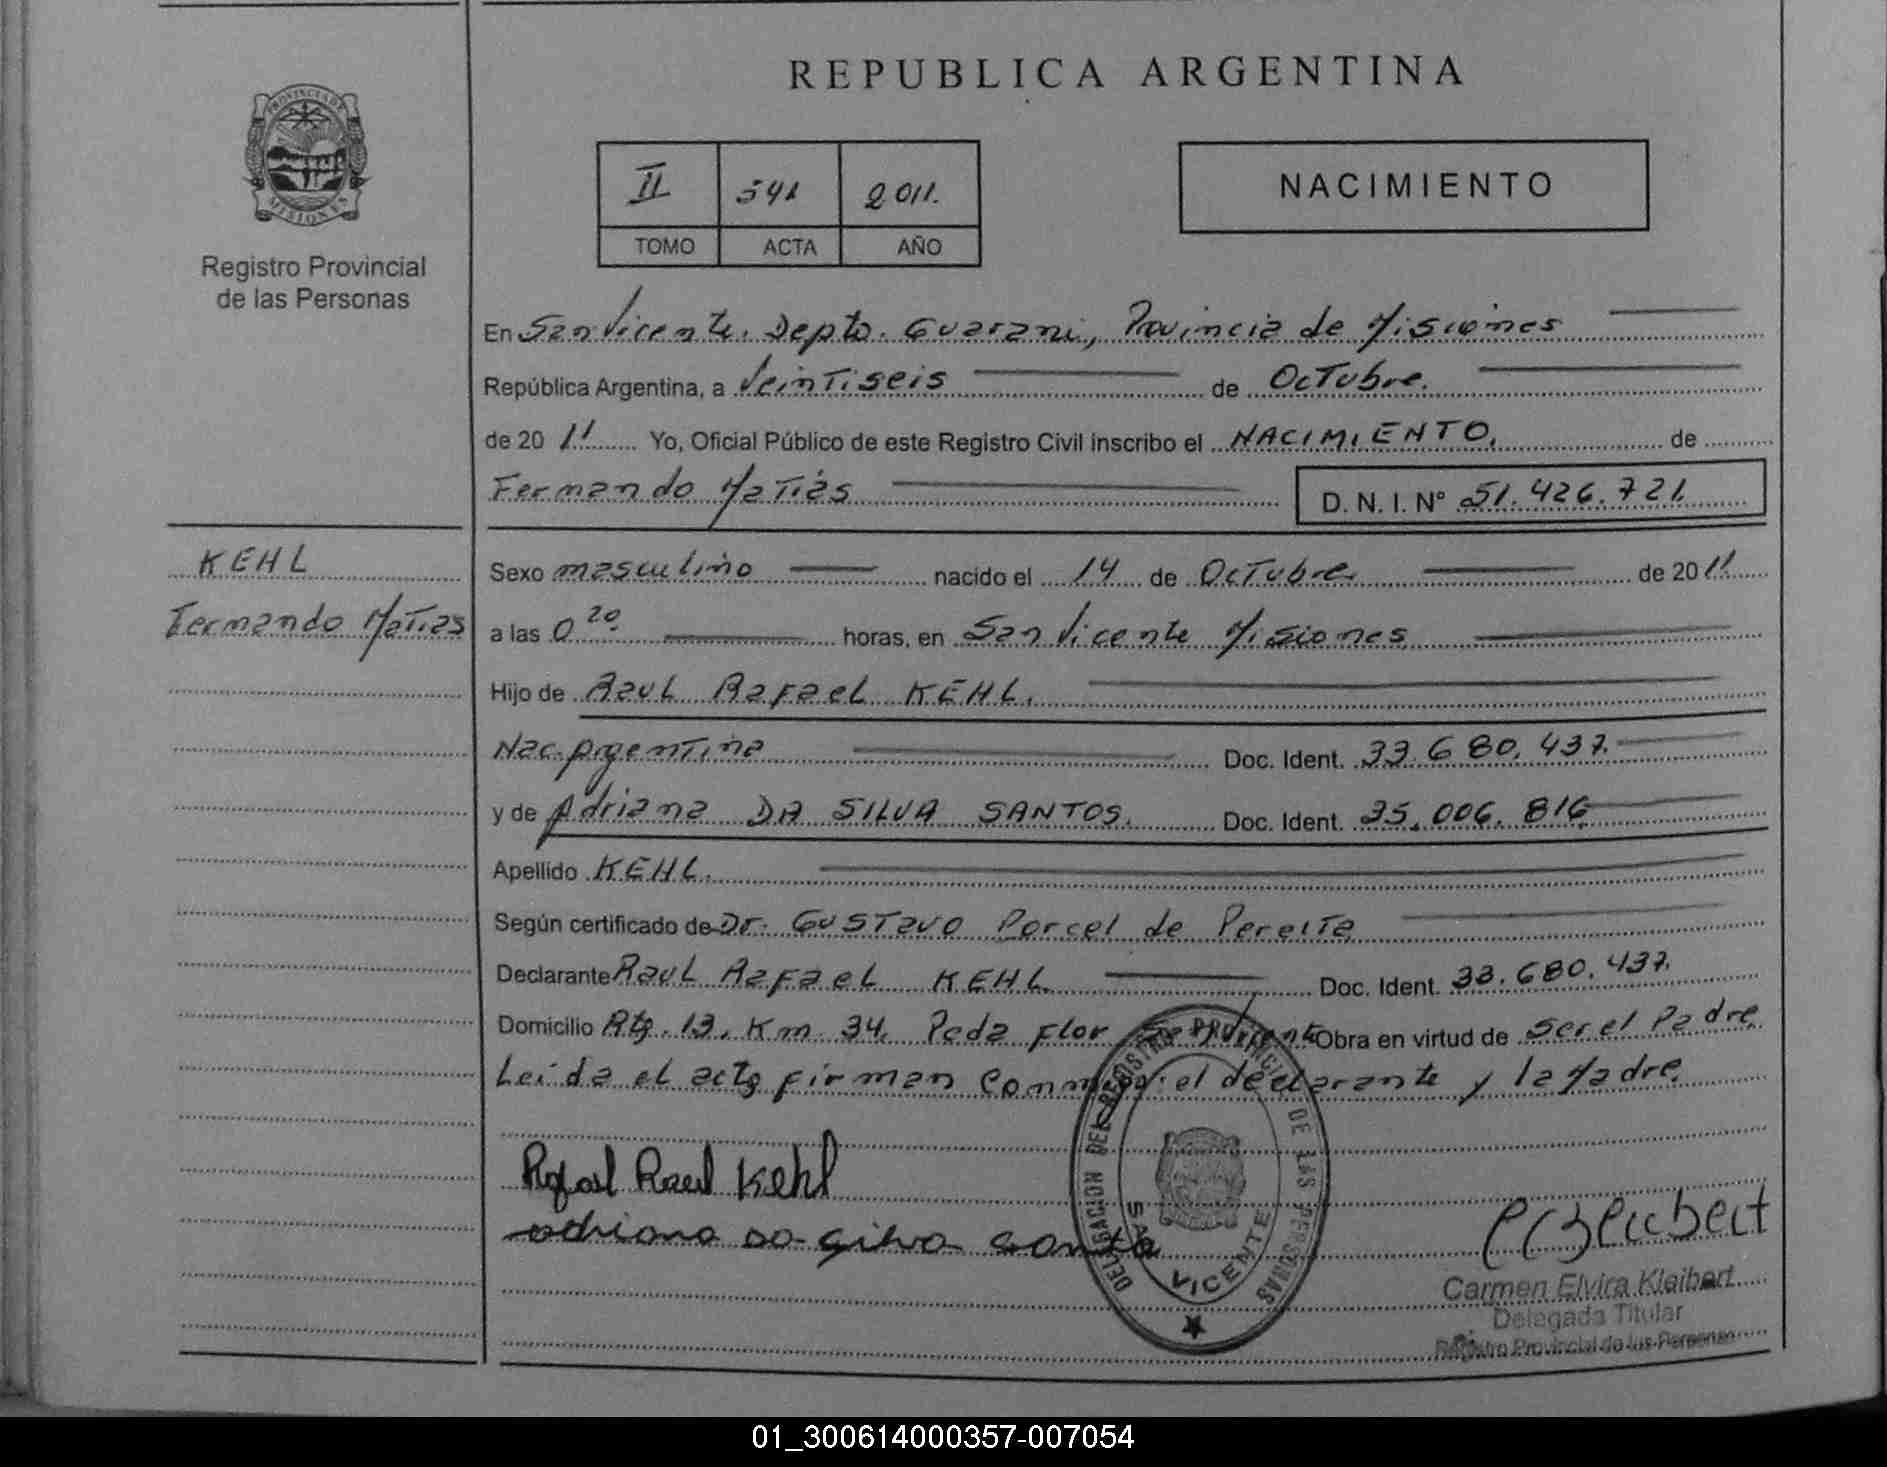 REPUBLICA ARGENTINA
PROVINCIA DE
MISIONES
Registro Provincial
de las Personas
II 541 2011.
TOMO ACTA AÑO
NACIMIENTO
En San Vicente. Depto. Guarani, Provincia de Misiones
República Argentina, a Veintiseis de Octubre.
de 20 11 Yo, Oficial Público de este Registro Civil inscribo el NACIMIENTO. de
Fernando Matias D. N. I. Nº 51.426.721.
KEHL
Fernando Matias
Sexo masculino nacido el 14 de Octubre de 20 11
a las 0 20. horas, en San Vicente Misiones
Hijo de Raul Rafael KEHL.
Nac. Argentina Doc. Ident. 33.680.437.
y de Adriana DA SILVA SANTOS. Doc. Ident. 35.006.816
Apellido KEHL.
Según certificado de Dr. Gustavo Porcel de Peralta
Declarante Raul Rafael KEHL Doc. Ident. 33.680.437.
Domicilio Rta. 13, Km 34, Peda flor Obra en virtud de ser el Padre
Leida el acta firman conmigo: el declarante y la Madre
Rafael Raul Kehl
adriana da silva santo
DELEGACION DEL REGISTRO PROVINCIAL DE LAS PERSONAS
SAN VICENTE
Carmen Elvira Kleibert
Delegada Titular
Registro Provincial de las Personas
01_300614000357-007054